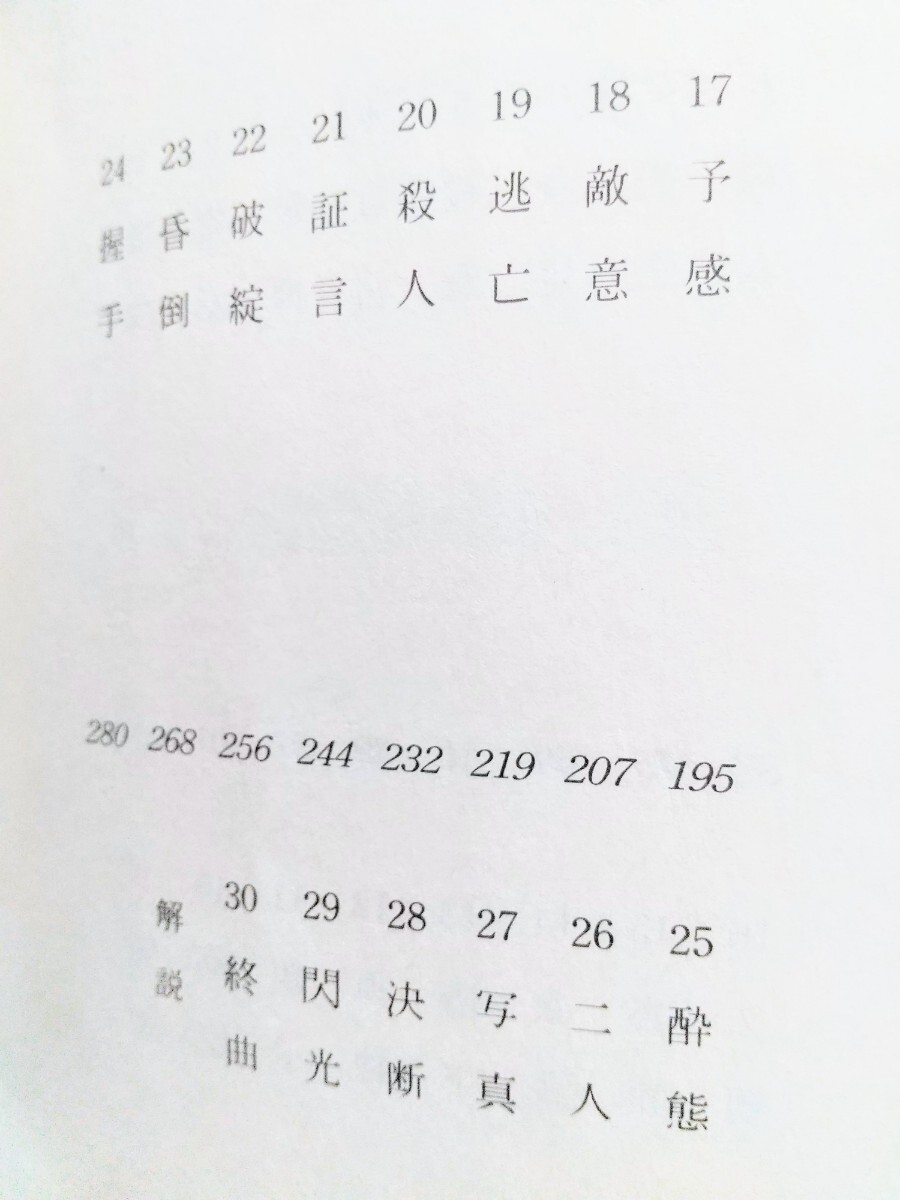 17 予感 195
18 敵意 207
19 逃亡 219
20 殺人 232
21 証言 244
22 破綻 256
23 昏倒 268
24 握手 280
25 酔態
26 二人
27 写真
28 決断
29 閃光
30 終曲
解説